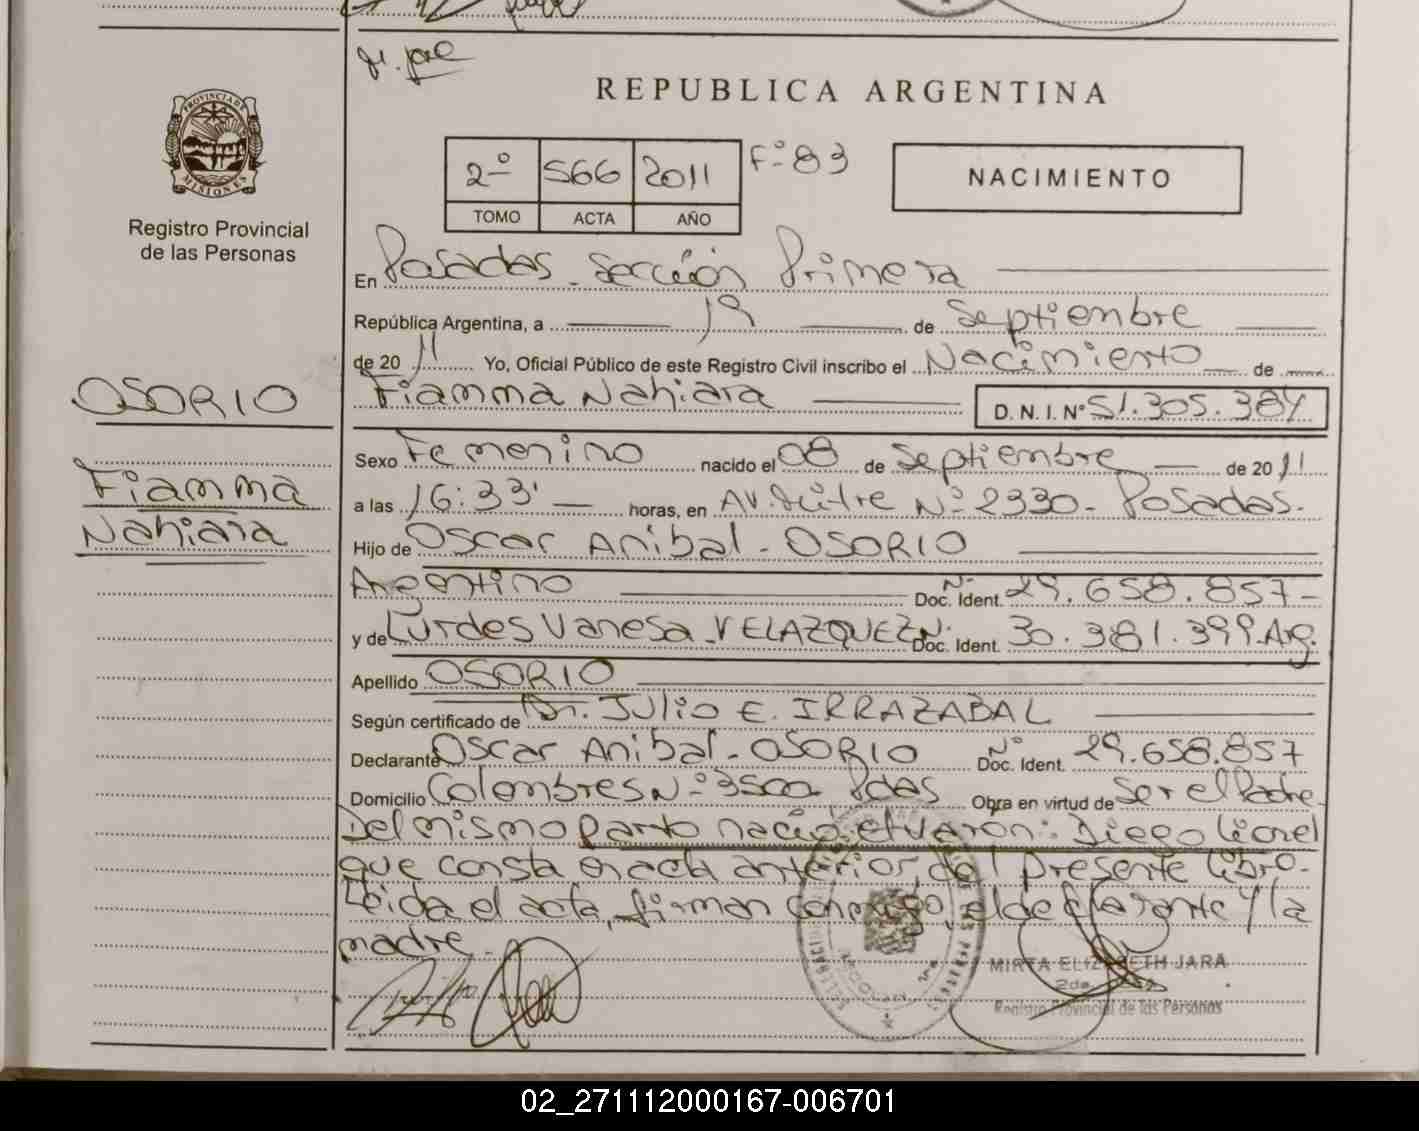 REPUBLICA ARGENTINA
PROVINCIA DE MISIONES
Registro Provincial
de las Personas
2º 566 2011 Fº 83
TOMO ACTA AÑO
NACIMIENTO
En Posadas - Sección Primera
República Argentina, a 19 de Septiembre
de 2011 Yo, Oficial Público de este Registro Civil inscribo el Nacimiento de
Fiamma Nahiara D.N.I. Nº 51.305.384
OSORIO
Fiamma
Nahiara
Sexo Femenino nacido el 08 de Septiembre de 2011
a las 16:33' horas, en Av. Mitre Nº 2330 - Posadas.
Hijo de Oscar Anibal - OSORIO
Argentino Doc. Ident. Nº 29.658.857-
y de Lurdes Vanesa - VELAZQUEZ Doc. Ident. Nº 30.381.399. Arg.
Apellido OSORIO
Según certificado de Dr. Julio E. IRRAZABAL
Declarante Oscar Anibal - OSORIO Doc. Ident. Nº 29.658.857
Domicilio Colombres Nº 3500 Pdas Obra en virtud de Ser el Padre.
Del mismo parto nació el varón: Diego Lionel
que consta en acta anterior, del presente libro.
Leida el acta, firman conmigo, el declarante y la
madre.
MIRTA ELIZABETH JARA
Registro Provincial de las Personas
02_271112000167-006701